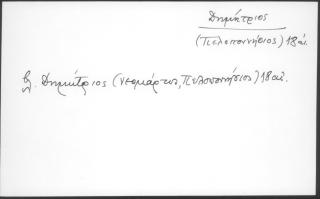 Δημήτριος
(Πελοποννήσιος) 18 αἰ.
βλ. Δημήτριος (νεομάρτυς, Πελοποννήσιος) 18 αἰ.